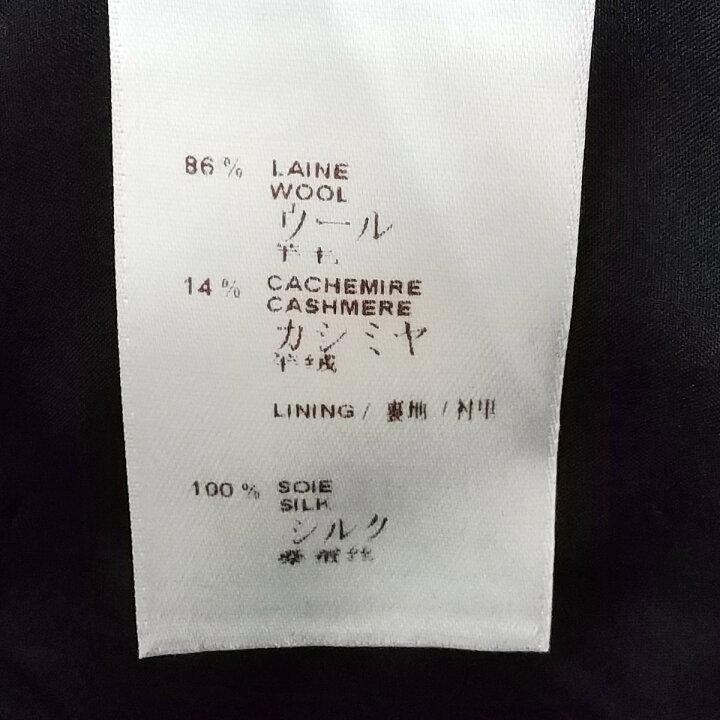 86% LAINE
WOOL
ウール
羊毛
14% CACHEMIRE
CASHMERE
カシミヤ
羊绒
LINING / 裏地 / 衬里
100% SOIE
SILK
シルク
桑蚕丝